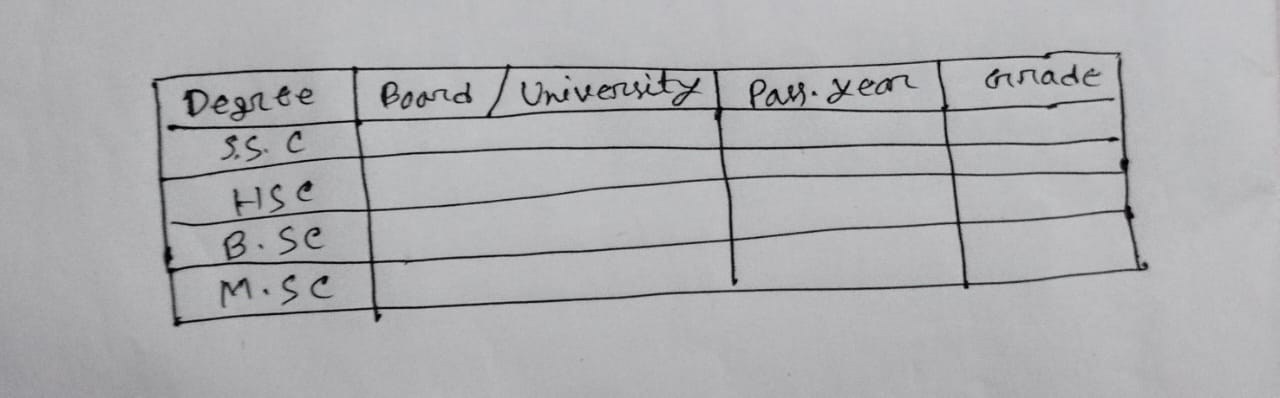 Degree Board / University Pass. year Grade
S.S. C
HSC
B. SC
M. SC